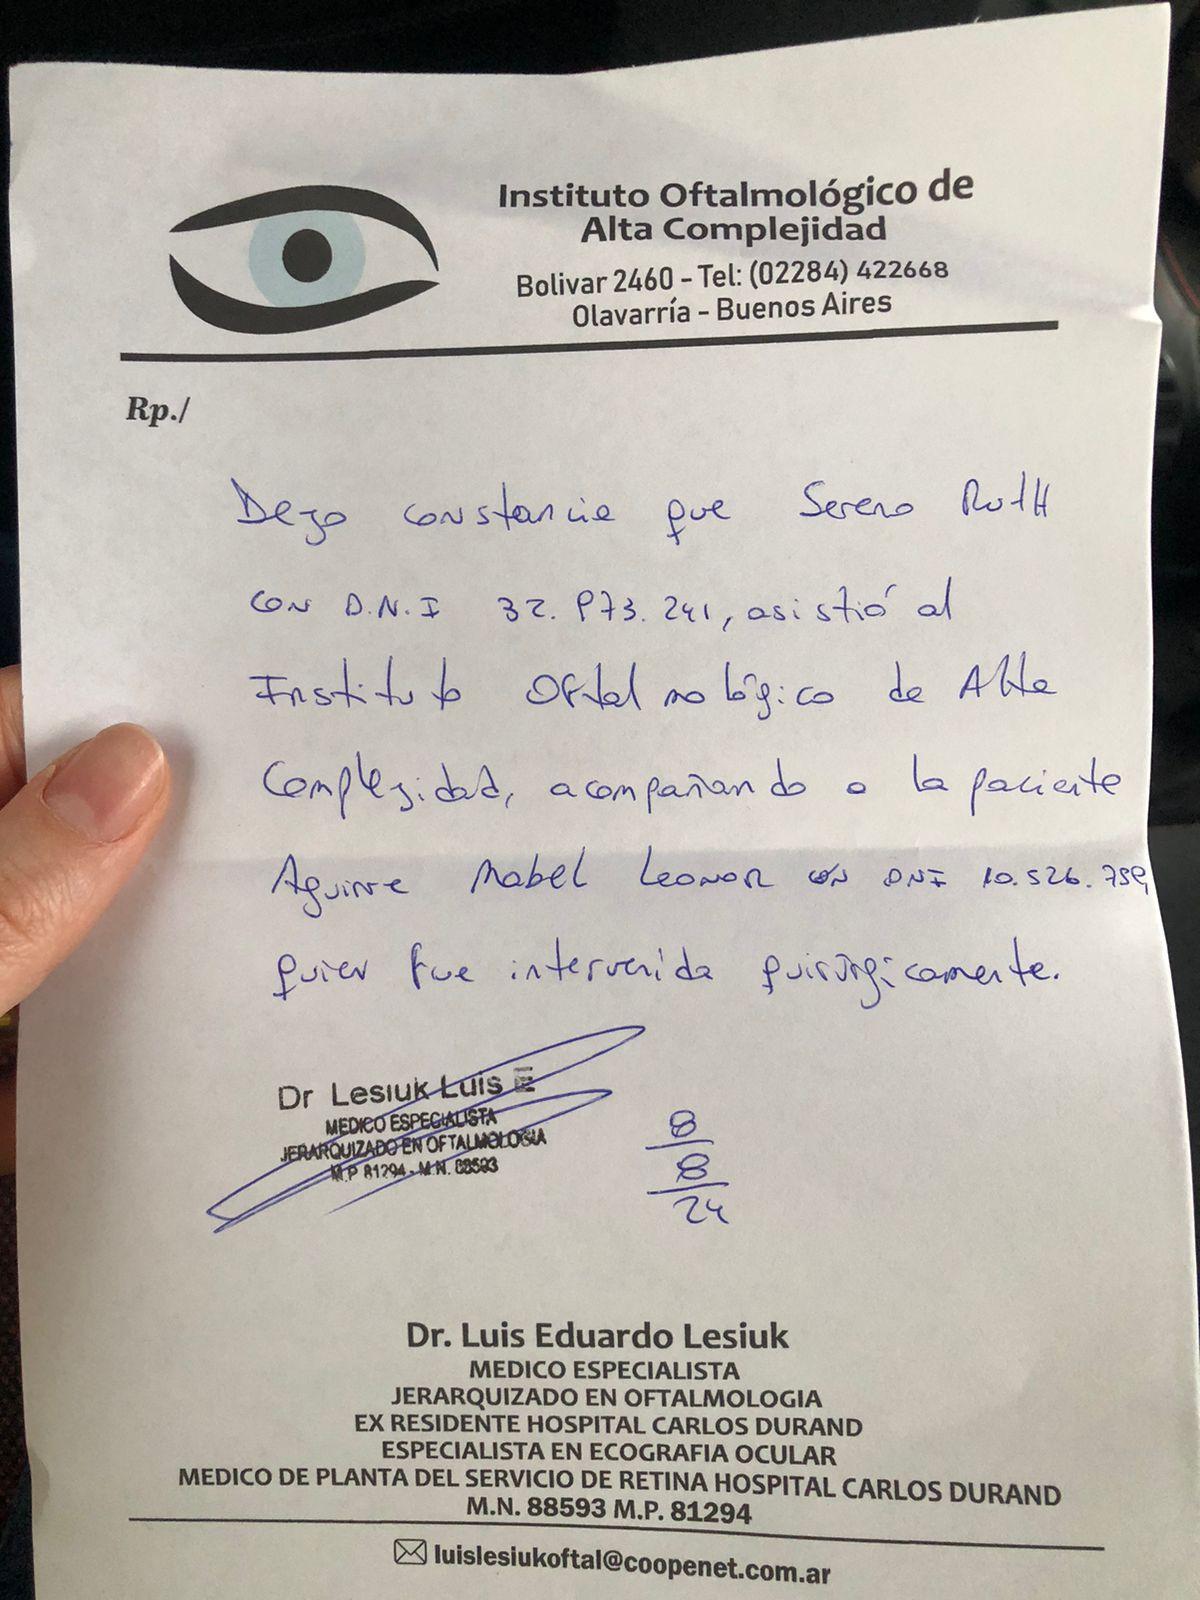 Instituto Oftalmológico de
Alta Complejidad
Bolivar 2460 - Tel: (02284) 422668
Olavarría - Buenos Aires
Rp./
Dejo constancia que Sereno Ruth
con D.N.I 32.973.241, asistió al
Instituto Oftalmológico de Alta
Complejidad, acompañando a la paciente
Aguirre Mabel Leonor con DNI 10.526.759,
quien fue intervenida quirúrgicamente.
Dr Lesiuk Luis E
MEDICO ESPECIALISTA
JERARQUIZADO EN OFTALMOLOGIA
M.P 81294 - M.N. 88593
8
8
24
Dr. Luis Eduardo Lesiuk
MEDICO ESPECIALISTA
JERARQUIZADO EN OFTALMOLOGIA
EX RESIDENTE HOSPITAL CARLOS DURAND
ESPECIALISTA EN ECOGRAFIA OCULAR
MEDICO DE PLANTA DEL SERVICIO DE RETINA HOSPITAL CARLOS DURAND
M.N. 88593 M.P. 81294
luislesiukoftal@coopenet.com.ar